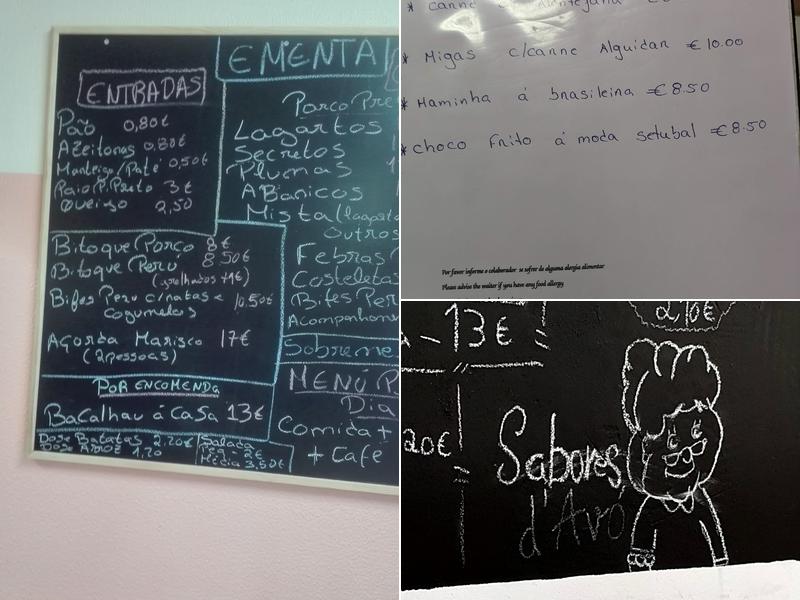 EMENTA
ENTRADAS
Pão 0,80€
Azeitonas 0,80€
Manteiga/Paté 0,50€
Paio P. Preto 3€
Queijo 2,50
Bitoque Porco 8€
Bitoque Peru 8.50€
(grelhados +1€)
Bifes Peru c/natas e 10.50€
cogumelos
Açorda Marisco 17€
(2 pessoas)
POR ENCOMENDA
Bacalhau á casa 13€
Dose Batatas 2.20€
Dose Arroz 1,20
Salada
Peq - 2€
Média 3,50€
Porco Pre
Lagartos
Secretos
Plumas
Abanicos
Mista (lagarto
Outros
Febras
Costeletas
Bifes Per
Acompanhame
Sobreme
MENÚ P
Dia
Comida +
+ Café
* Migas c/carne Alguidar €10.00
* Maminha á brasileira €8.50
* choco Frito á moda setubal €8.50
Por favor informe o colaborador se sofrer de alguma alergia alimentar
Please advise the waiter if you have any food allergy
13€
2,10€
20€
Sabores
d'Avó